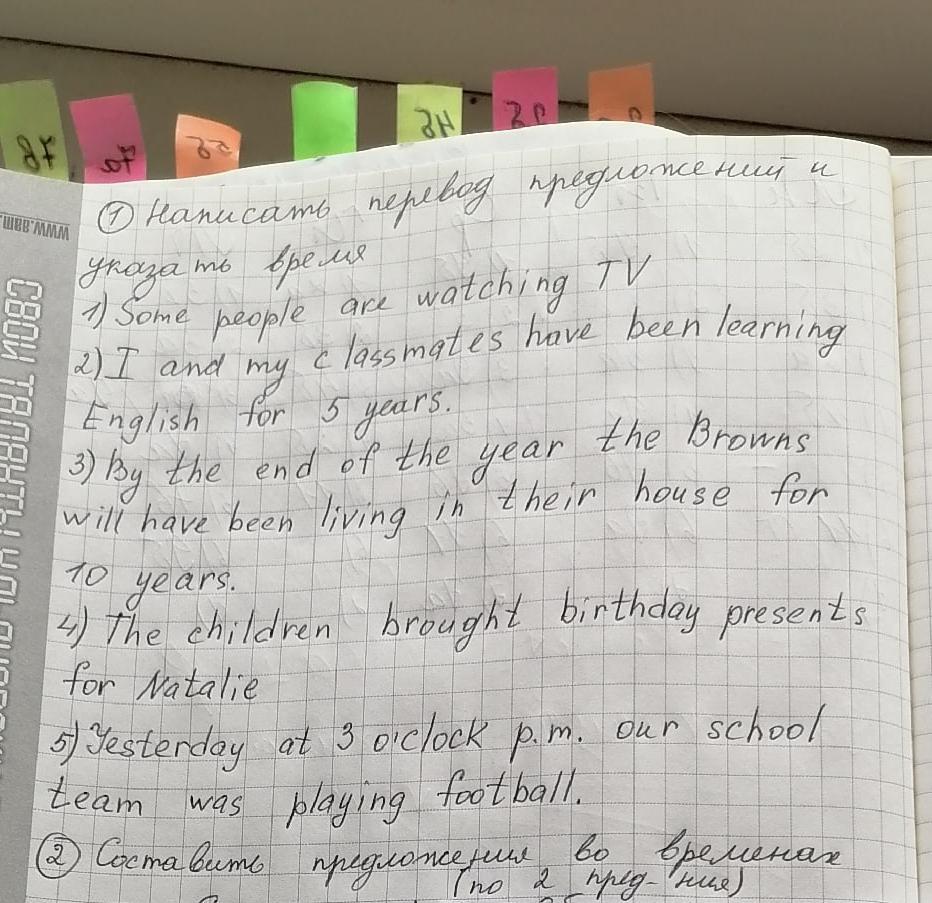 7В
7а
① Написать перевод предложений и
указать время
1) Some people are watching TV
2) I and my classmates have been learning
English for 5 years.
3) By the end of the year the Browns
will have been living in their house for
10 years.
4) The children brought birthday presents
for Natalie
5) Yesterday at 3 o'clock p.m. our school
team was playing football.
② Составить предложения во временах
(по 2 пред-ния)